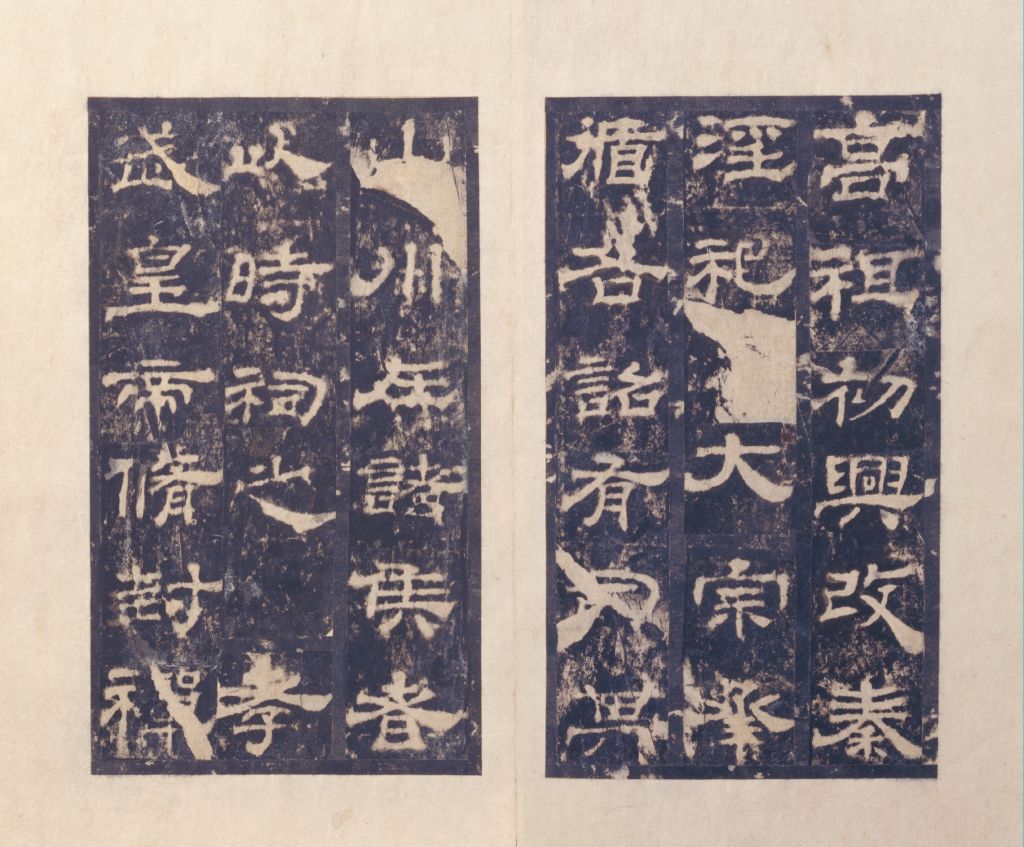 高祖初興改秦
淫祀大宗承
循各詔有司其
山川在諸侯者
以時祠之孝
武皇帝脩封禪